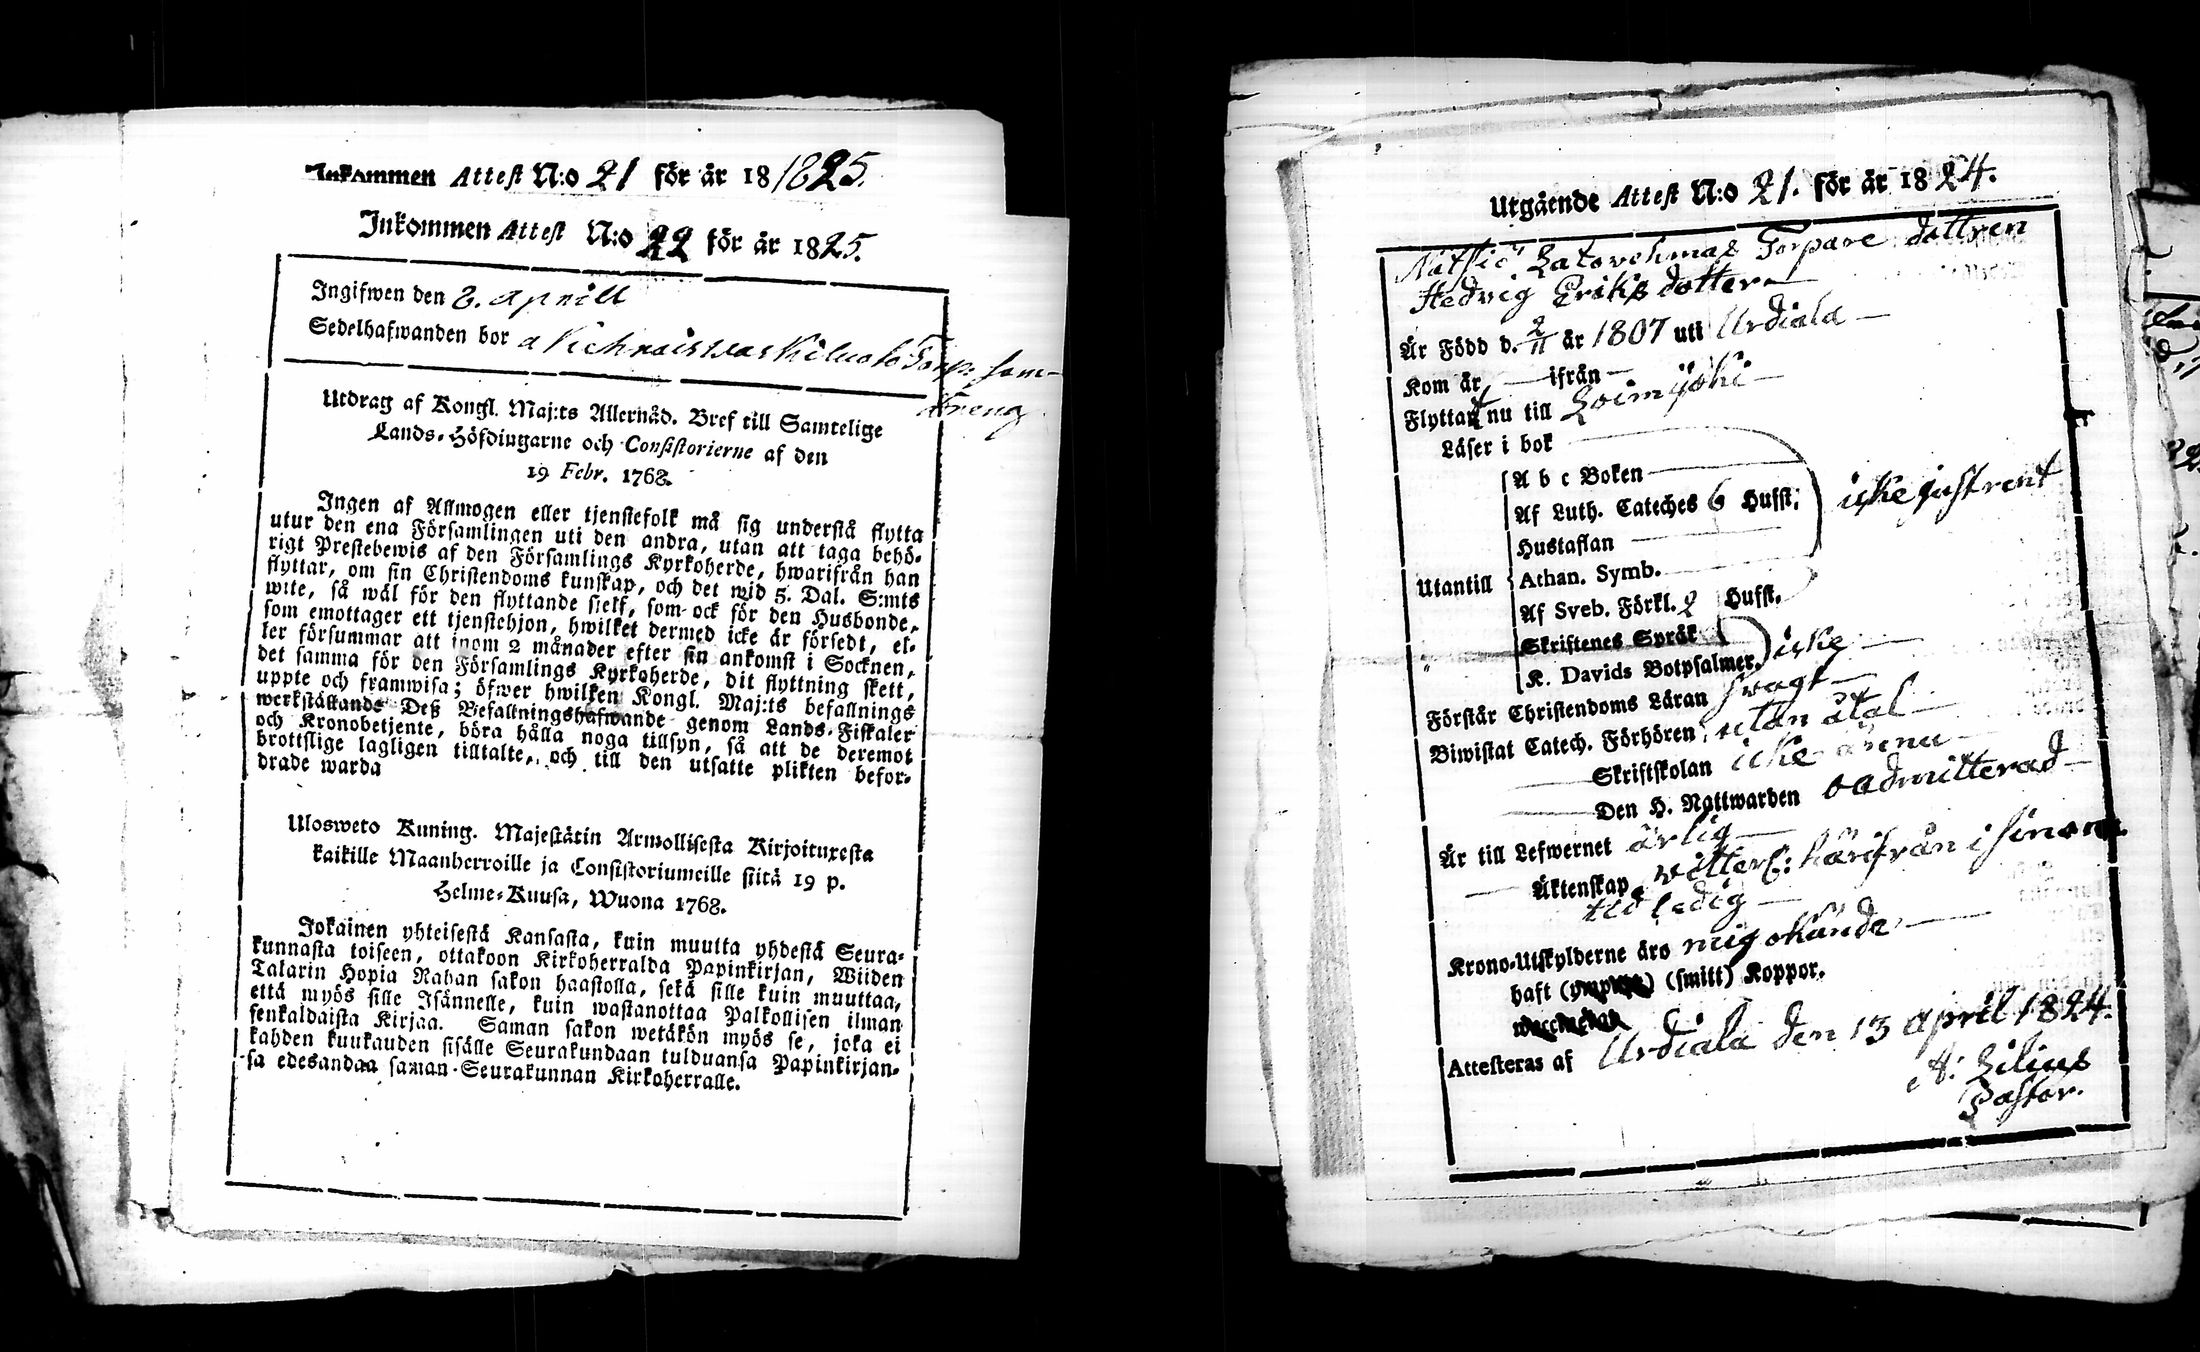 Inkommen Attest N:o 21 för år 18/825.
Inkommen Attest N:o 22 för år 1825.
Ingifwen den 8. aprill
Sedelhafwanden bor a Torp: som
dreng
Utdrag af Kongl. Maj:ts Allernåd. Bref till Samtelige
Lands-Höfdingarne och Consistorierne af den
19 Febr. 1768.
Ingen af Allmogen eller tjenstefolk må sig understå flytta
utur den ena Församlingen uti den andra, utan att taga behö-
rigt Prestebewis af den Församlings Kyrkoherde, hwarifrån han
flyttar, om sin Christendoms kunskap, och det wid 5. Dal. S:mts
wite, så wäl för den flyttande sielf, som ock för den Husbonde,
som emottager ett tjenstehjon, hwilket dermed icke är försedt, el-
ler försummar att inom 2 månader efter sin ankomst i Socknen,
det samma för den Församlings Kyrkoherde, dit flyttning skett,
uppte och framwisa; öfwer hwilken Kongl. Maj:ts befallnings
werkställande Deß Befallningshafwande genom Lands-Fiskaler
och Kronobetjente, böra hålla noga tillsyn, så att de deremot
brottslige lagligen tilltalte, och till den utsatte plikten befor-
drade warda
Ulosweto Kuning. Majestätin Armollisesta Kirjoituxesta
kaikille Maanherroille ja Consistoriumeille siitä 19 p.
Helme-Kuusa, Wuona 1768.
Jokainen yhteisestä Kansasta, kuin muutta yhdestä Seura-
kunnasta toiseen, ottakoon Kirkoherralda Papinkirjan, Wiiden
Talarin Hopia Rahan sakon haastolla, sekä sille kuin muuttaa,
että myös sille Isännelle, kuin wastanottaa Palkollisen ilman
senkaldaista Kirjaa. Saman sakon wetäkön myös se, joka ei
kahden kuukauden sisälle Seurakundaan tulduansa Papinkirjan-
sa edesandaa saman Seurakunnan Kirkoherralle.
Utgående Attest N:o 21. för år 1824.
Torpare dottren
Hedvig Eriksdotter
Är Född d. 2/11 år 1807 uti Urdiala
Kom år — ifrån —
Flyttar nu till Loimijoki
Läser i bok
A b c Boken
Af Luth. Cateches 6 Hufst. icke justrent
Hustaflan
Utantill Athan. Symb.
Af Sveb. Förkl. 2 Hufst.
Skriftenes Språk
K. Davids Botpsalmer. icke
Förstår Christendoms Läran swagt
Biwistat Catech. Förhören utan åtal
Skriftskolan icke ännu
Den H. Nattwarden oadmitterad
Är till Lefwernet ärlig
Äktenskap härifrån i
ledig
Krono-Utskylderne äro mig okände
haft (ympade) (smitt) Koppor.
Attesteras af Urdiala den 13 april 1824.
A: Lilius
Pastor.